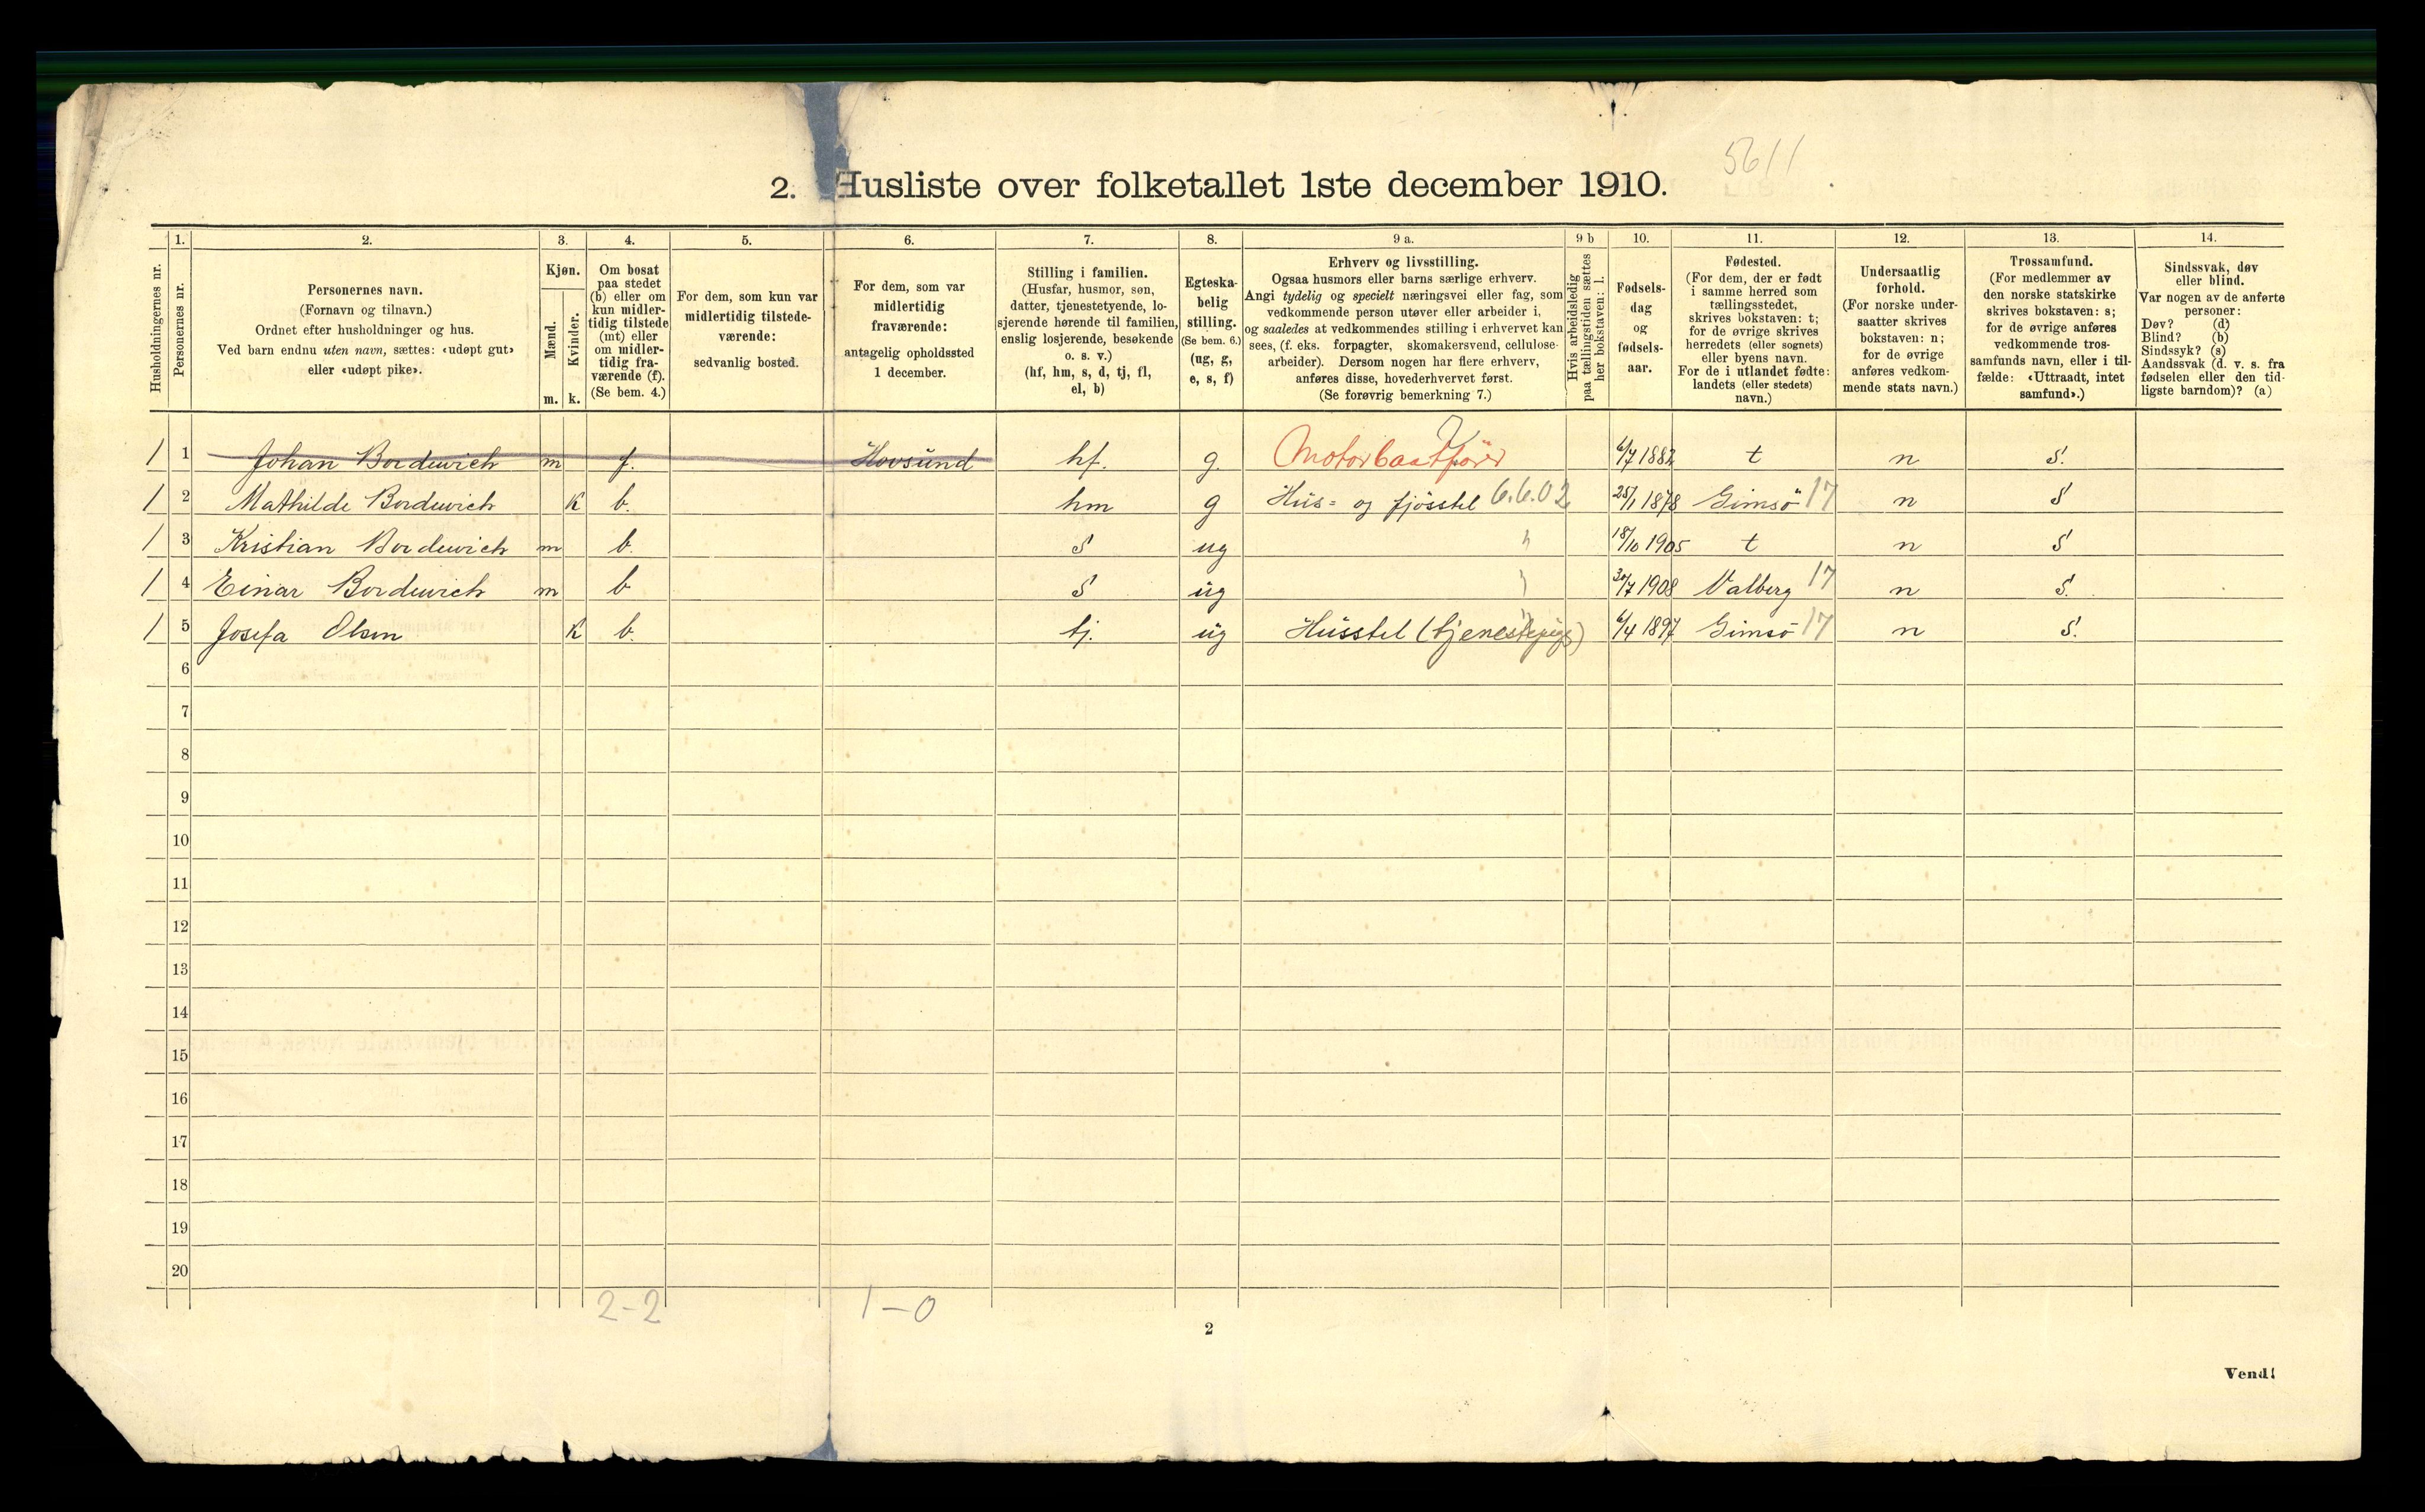 5611
2. Husliste over folketallet 1ste december 1910.
Husholdningernes nr.
1.
Personernes nr.
2.
Personernes navn.
(Fornavn og tilnavn.)
Ordnet efter husholdninger og hus.
Ved barn endnu uten navn, sættes: «udøpt gut»
eller «udøpt pike».
3.
Kjøn.
Mænd.
Kvinder.
m. k.
4.
Om bosat
paa stedet
(b) eller om
kun midler-
tidig tilstede
(mt) eller
om midler-
tidig fra-
værende (f).
(Se bem. 4.)
5.
For dem, som kun var
midlertidig tilstede-
værende:
sedvanlig bosted.
6.
For dem, som var
midlertidig
fraværende:
antagelig opholdssted
1 december.
7.
Stilling i familien.
(Husfar, husmor, søn,
datter, tjenestetyende, lo-
sjerende hørende til familien,
enslig losjerende, besøkende
o. s. v.)
(hf, hm, s, d, tj, fl,
el, b)
8.
Egteska-
belig
stilling.
(Se bem. 6.)
(ug, g,
e, s, f)
9 a.
Erhverv og livsstilling.
Ogsaa husmors eller barns særlige erhverv.
Angi tydelig og specielt næringsvei eller fag, som
vedkommende person utøver eller arbeider i,
og saaledes at vedkommendes stilling i erhvervet kan
sees, (f. eks. forpagter, skomakersvend, cellulose-
arbeider). Dersom nogen har flere erhverv,
anføres disse, hovederhvervet først.
(Se forøvrig bemerkning 7.)
9 b
Hvis arbeidsledig
paa tællingstiden sættes
her bokstaven: l.
10.
Fødsels-
dag
og
fødsels-
aar.
11.
Fødested.
(For dem, der er født
i samme herred som
tællingsstedet,
skrives bokstaven: t;
for de øvrige skrives
herredets (eller sognets)
eller byens navn.
For de i utlandet fødte:
landets (eller stedets)
navn.)
12.
Undersaatlig
forhold.
(For norske under-
saatter skrives
bokstaven: n;
for de øvrige
anføres vedkom-
mende stats navn.)
13.
Trossamfund.
(For medlemmer av
den norske statskirke
skrives bokstaven: s;
for de øvrige anføres
vedkommende tros-
samfunds navn, eller i til-
fælde: «Uttraadt, intet
samfund».)
14.
Sindssvak, døv
eller blind.
Var nogen av de anførte
personer:
Døv? (d)
Blind? (b)
Sindssyk? (s)
Aandssvak (d. v. s. fra
fødselen eller den tid-
ligste barndom)? (a)
1 1 Johan Bordewich m f. Hovsund hf. g. Motorbaatfører 6/7 1882 t n s.
1 2 Mathilde Bordewich k b. hm g Hus= og fjösstel 6.6.02 25/1 1878 Gimsö 17 n s
1 3 Kristian Bordewich m b. s ug 18/10 1905 t n s
1 4 Einar Bordewich m b s ug 30/7 1908 Valberg 17 n s.
1 5 Josefa Olsen k b. tj. ug Husstel (tjenestepige) 6/4 1897 Gimsö 17 n s.
6
7
8
9
10
11
12
13
14
15
16
17
18
19
20
2-2 1-0
2
Vend!